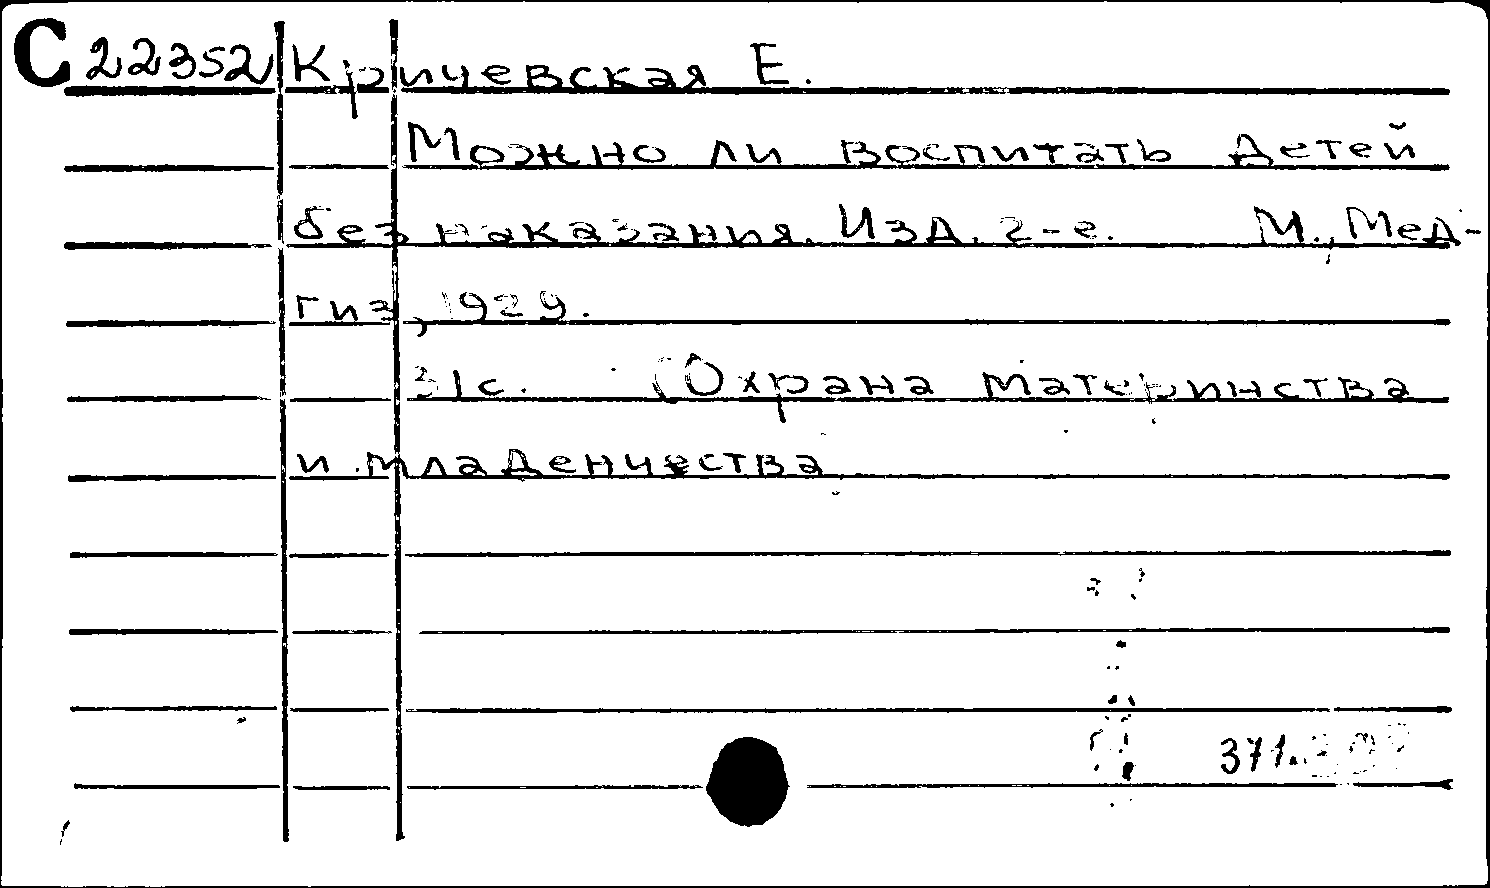 С 22352 Кричевская Е.
Можно ли воспитать детей
без наказания. Изд. 2-е. М., Мед-
гиз, 1929.
31с. (Охрана материнства
и младенчества